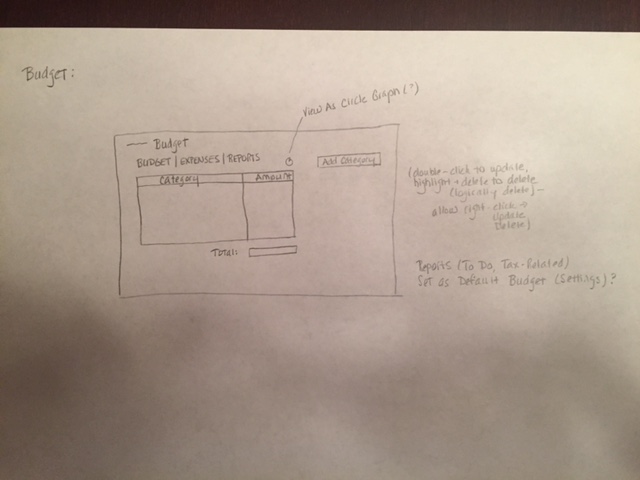 Budget:
View As Click Graph (?)
Budget
BUDGET | EXPENSES | REPORTS
Add Category
Category Amount
Total:
(double-click to update,
highlight + delete to delete
(logically delete) -
allow right-click →
Update
Delete)
Reports (To Do, Tax-Related)
Set as Default Budget (Settings)?